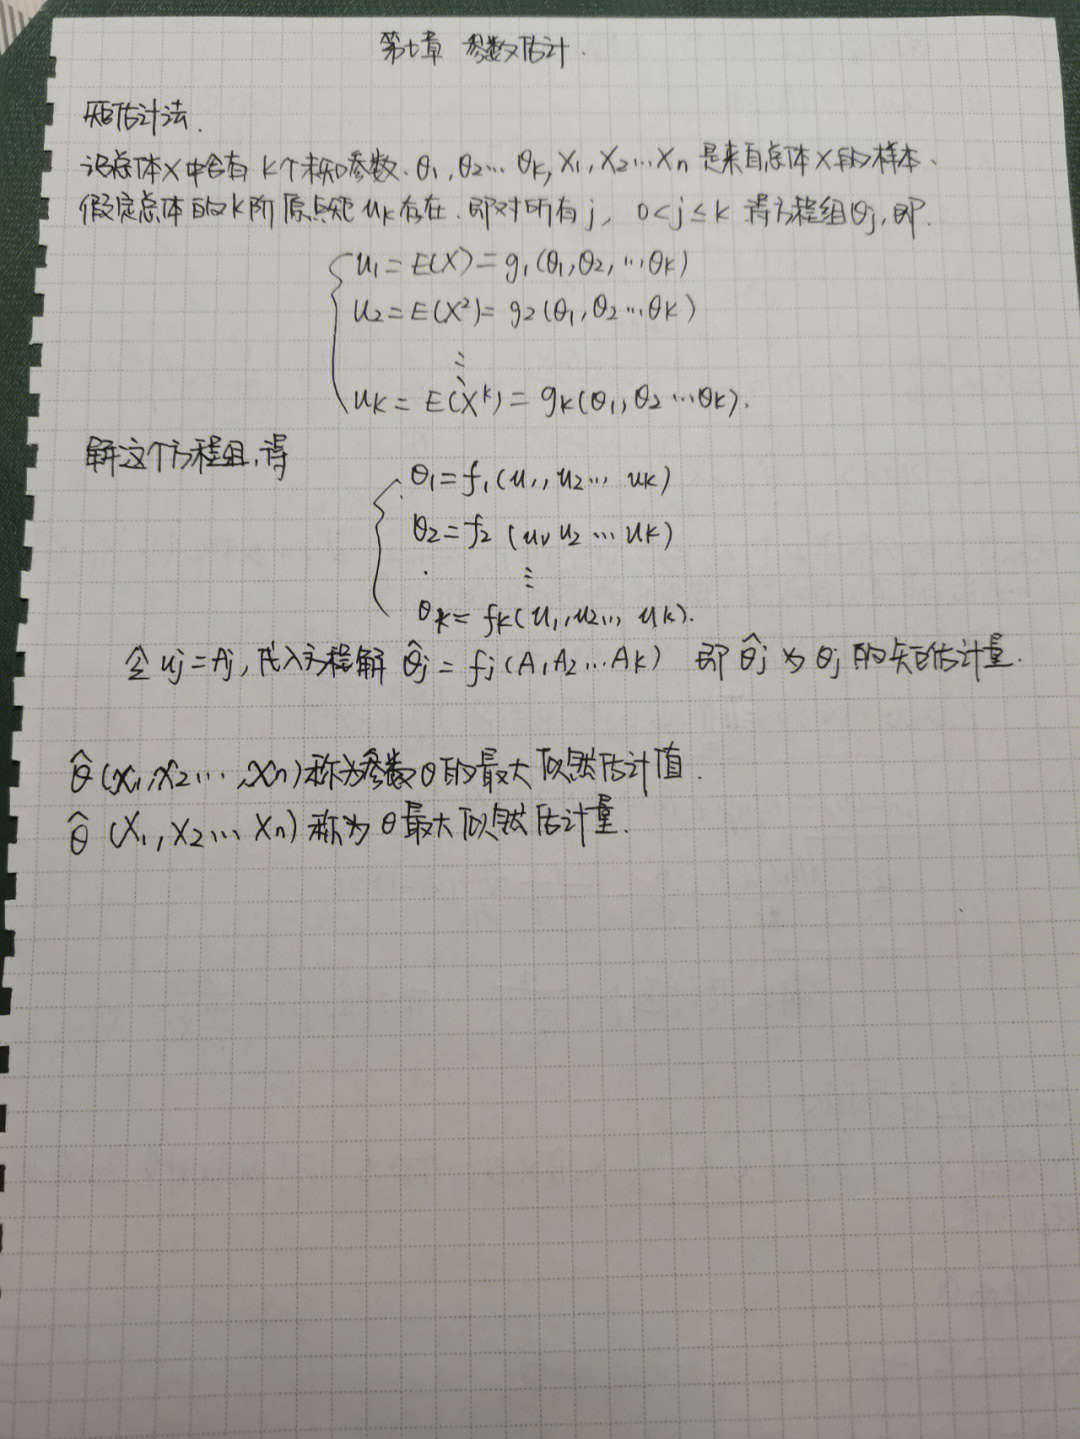 第七章 参数估计.
矩估计法.
设总体X中含有 k个未知参数. θ1, θ2… θk, X1, X2…Xn 是来自总体X的样本.
假定总体的k阶原点矩 uk存在. 即对所有j, 0<j≤k 得方程组θj, 即.
u1=E(X)=g1(θ1,θ2,…θk)
u2=E(X²)=g2(θ1,θ2…θk)
⋮
uk=E(X^k)=gk(θ1,θ2…θk).
解这个方程组,得
θ1=f1(u1,u2… uk)
θ2=f2(u1,u2…uk)
⋮
θk=fk(u1,u2… uk).
令 uj=Aj, 代入方程解 θ̂j=fj(A1A2…Ak) 即 θ̂j 为 θj 的矩估计量.
θ̂(x1,x2…,xn)称为参数θ的最大似然估计值.
θ̂(X1,X2…Xn)称为θ最大似然估计量.